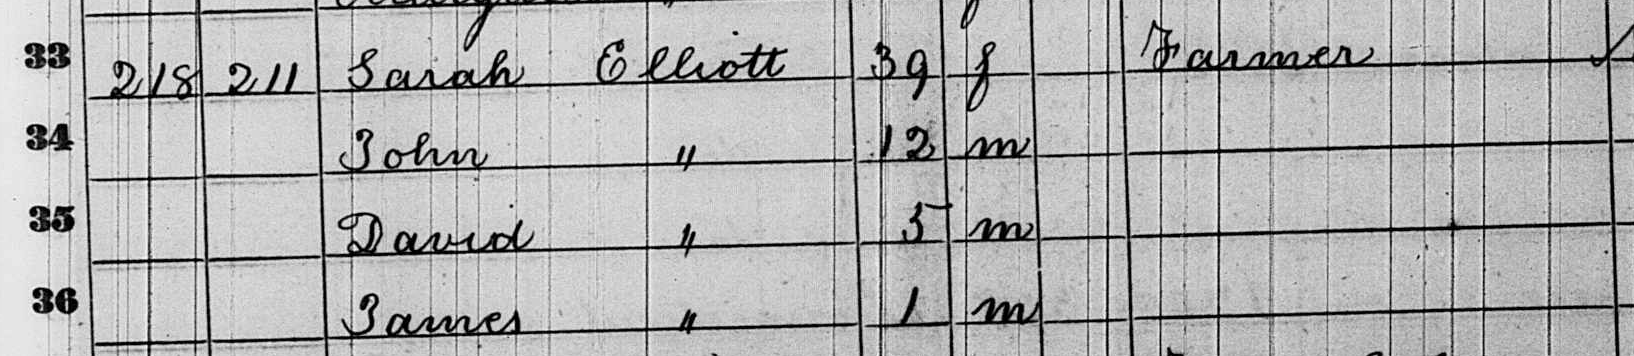 33 218 211 Sarah Elliott 39 f Farmer
34 John " 12 m
35 David " 5 m
36 James " 1 m